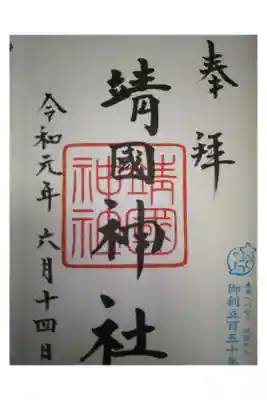 奉拝
靖國神社
靖國神社
令和元年六月十四日
御創立百五十年